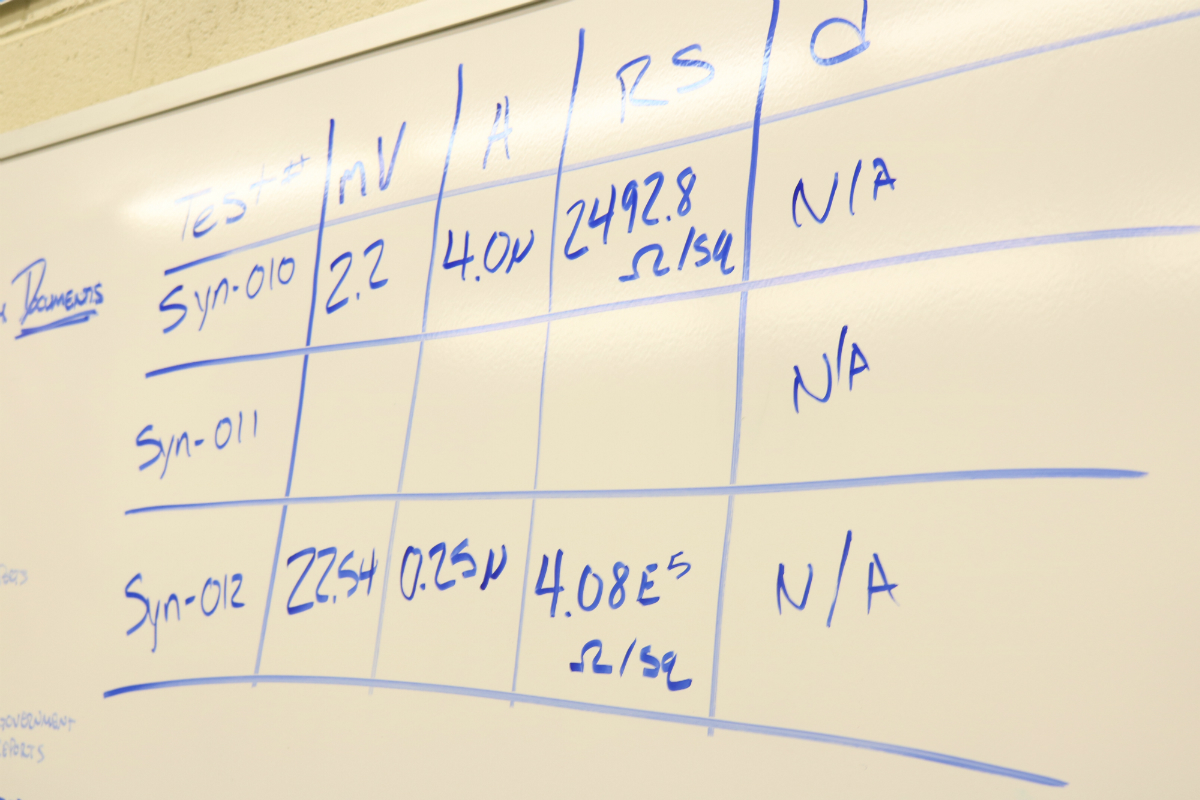 Test # mV A RS d
Syn-010 2.2 4.0µ 2492.8 Ω/sq N/A
Syn-011 N/A
Syn-012 22.54 0.25µ 4.08E⁵ Ω/sq N/A
DOCUMENTS
GOVERNMENT
REPORTS